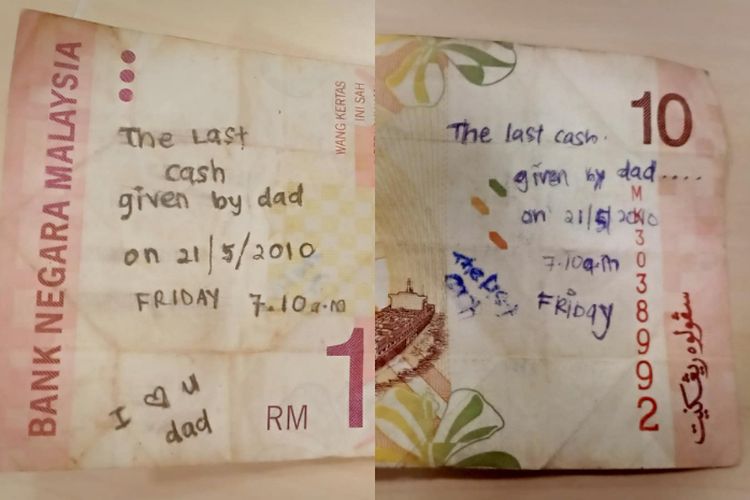 BANK NEGARA MALAYSIA
WANG KERTAS
INI SAH
The Last
cash
given by dad
on 21/5/2010
FRIDAY 7.10a.m
I ♡ u
dad
RM 1
10
The last cash.
given by dad....
on 21/5/2010
7.10a.m
FRiDay
3038992
سڤولوه ريڠݢيت